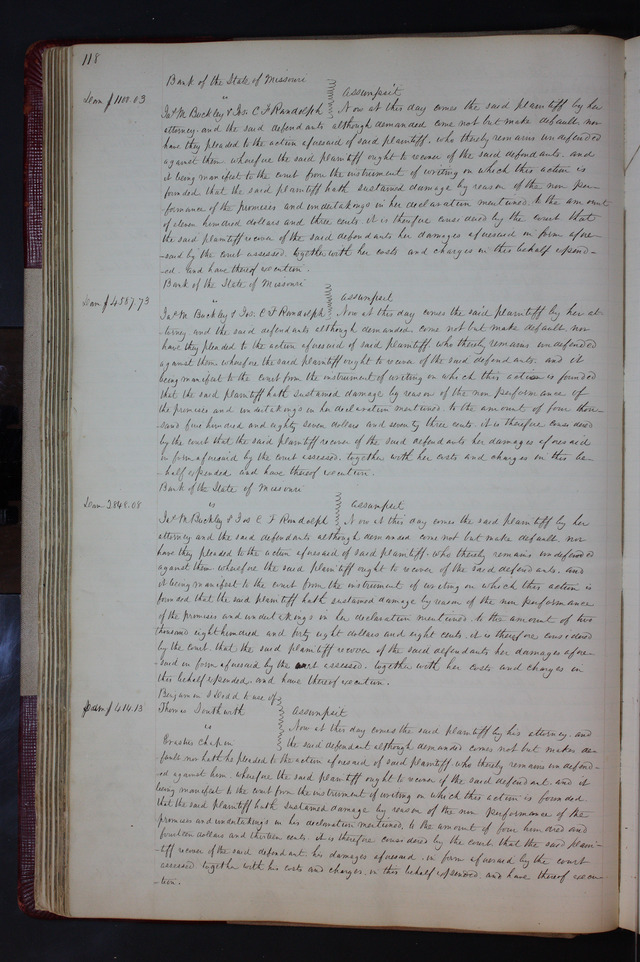 118
Bank of the State of Missouri
Dam $1100.03 vs assumpsit
Jas M. Buckley & Jos. C F Randolph Now at this day comes the said plaintiff by her
attorney. and the said defendants although demanded come not but make default, nor
have they pleaded to the action aforesaid of said plaintiff. who thereby remains undefended
against them. wherefore the said plaintiff ought to recover of the said defendants. and
it being manifest to the court from the instrument of writing on which this action is
founded that the said plaintiff hath sustained damage by reason of the non per-
formance of the promises and undertakings in her declaration mentioned. to the amount
of eleven hundred dollars and three cents. it is therefore considered by the court that
the said plaintiff recover of the said defendants her damages aforesaid in form afore-
-said by the court assessed. together with her costs and charges in this behalf expend-
-ed. and have thereof execution.
Bank of the State of Missouri
Dam $4587.73 vs assumpsit
Jas M. Buckley & Jos. C F Randolph Now at this day comes the said plaintiff by her at-
torney and the said defendants although demanded come not but make default nor
have they pleaded to the action aforesaid of said plaintiff. who thereby remains undefended
against them wherefore the said plaintiff ought to recover of the said defendants. and it
being manifest to the court from the instrument of writing on which this action is founded
that the said plaintiff hath sustained damage by reason of the non performance of
the promises and undertakings in her declaration mentioned to the amount of four thou-
sand five hundred and eighty seven dollars and seventy three cents. it is therefore considered
by the court that the said plaintiff recover of the said defendants her damages aforesaid
in form aforesaid by the court assessed. together with her costs and charges in this be-
half expended and have thereof execution.
Bank of the State of Missouri
Dam. 2848.08 vs assumpsit
Jas M. Buckley & Jos C F Randolph Now at this day comes the said plaintiff by her
attorney and the said defendants although demanded come not but make default. nor
have they pleaded to the action aforesaid of said plaintiff. who thereby remains undefended
against them wherefore the said plaintiff ought to recover of the said defendants. and
it being manifest to the court from the instrument of writing on which this action is
founded that the said plaintiff hath sustained damage by reason of the non performance
of the promises and undertakings in her declaration mentioned. to the amount of two
thousand eight hundred and forty eight dollars and eight cents. it is therefore considered
by the court that the said plaintiff recover of the said defendants her damages afore-
said in form aforesaid by the court assessed. together with her costs and charges in
this behalf expended. and have thereof execution.
Benjamin to use of
Dam $414.13 Thomas Southworth assumpsit
vs Now at this day comes the said plaintiff by his attorney. and
Erastus Chapin the said defendant although demanded comes not but makes de-
fault nor hath he pleaded to the action aforesaid of said plaintiff who thereby remains undefend-
ed against him. wherefore the said plaintiff ought to recover of the said defendant and it
being manifest to the court from the instrument of writing on which this action is founded
that the said plaintiff hath sustained damage by reason of the non performance of the
promises and undertakings in his declaration mentioned. to the amount of four hundred and
fourteen dollars and thirteen cents. it is therefore considered by the court that the said plain-
-tiff recover of the said defendant his damages aforesaid. in form aforesaid by the court
assessed together with his costs and charges in this behalf expended and have thereof execu-
-tion.